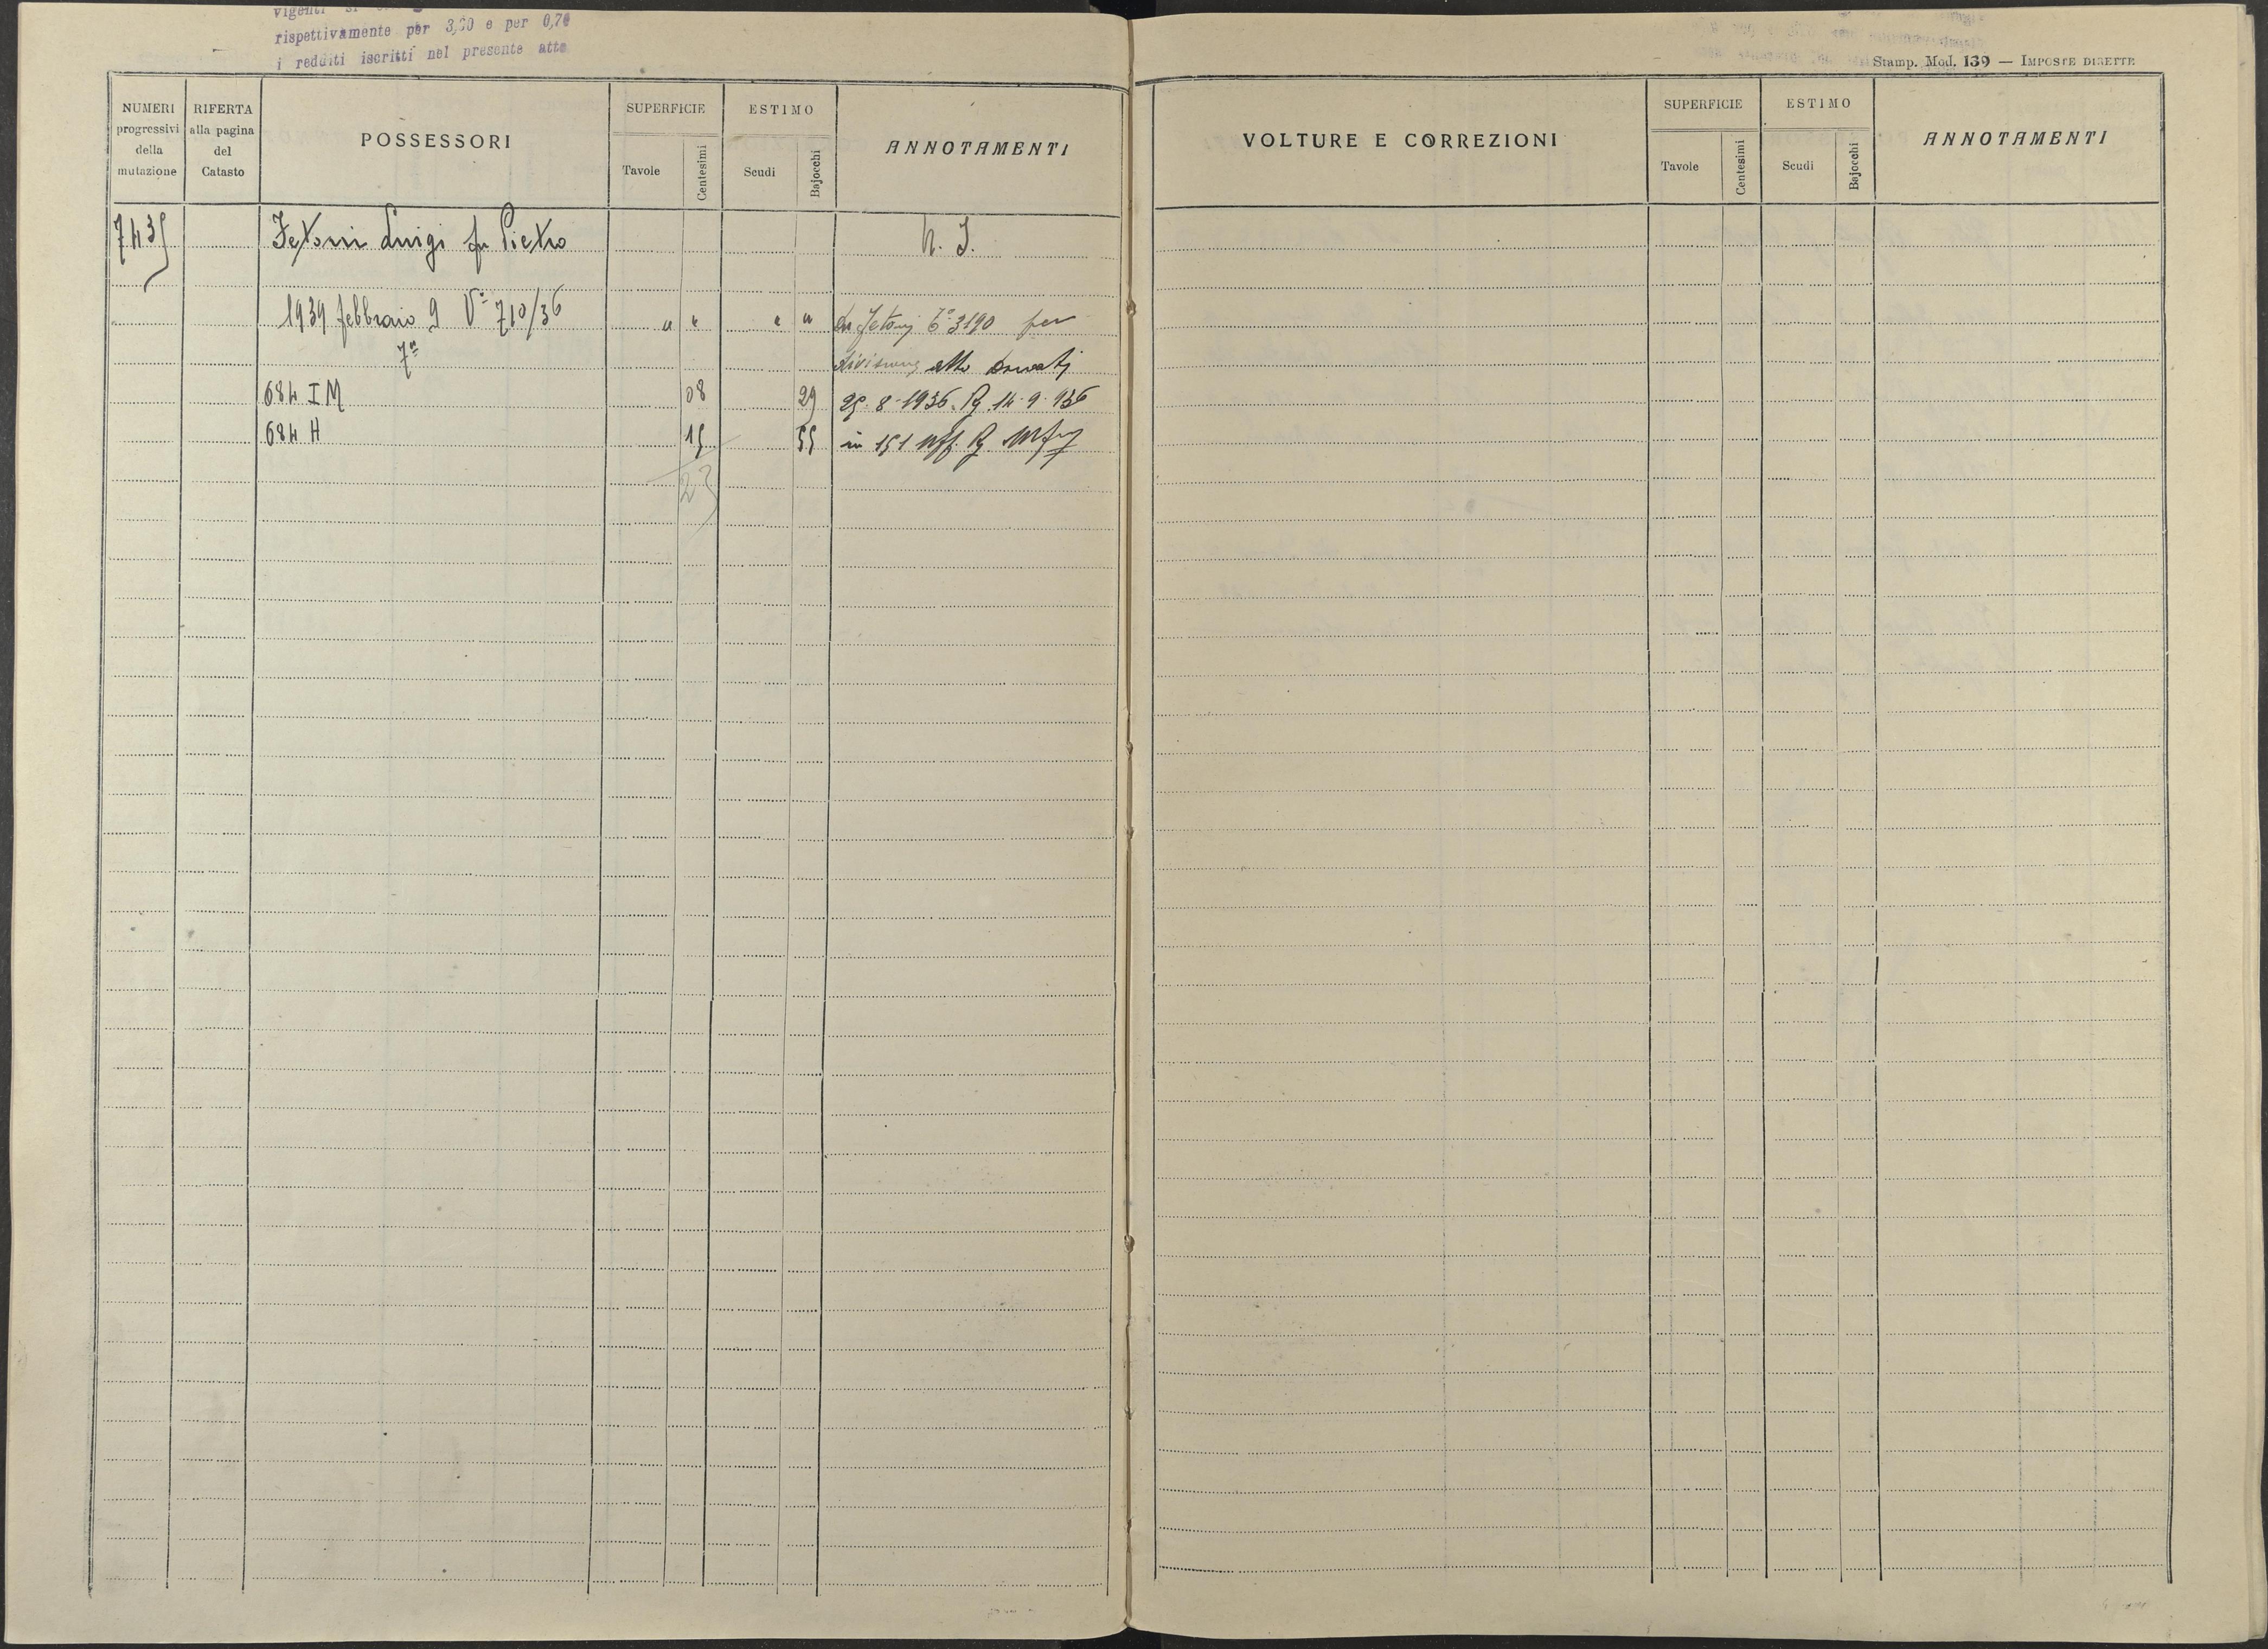 rispettivamente per 3,20 e per 0,70
i redditi iscritti nel presente atto
Stamp. Mod. 139 — IMPOSTE DIRETTE
NUMERI progressivi della mutazione
RIFERTA alla pagina del Catasto
POSSESSORI
SUPERFICIE
Tavole
Centesimi
ESTIMO
Scudi
Bajocchi
ANNOTAMENTI
VOLTURE E CORREZIONI
SUPERFICIE
Tavole
Centesimi
ESTIMO
Scudi
Bajocchi
ANNOTAMENTI
7435 Luigi fu Pietro
1939 febbraio 9 V° 710/36 " " " " 3190 per
7° divisione atto
684 I M 08 29 25-8-1936 Rg 14-9-936
684 H 15 55 in 151 Uff. Rg
23